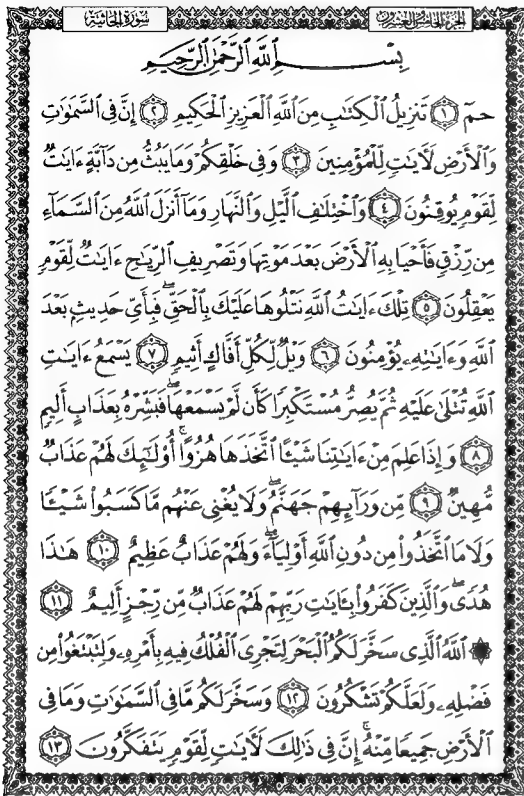 سُورَةُ الجَاثِيَةِ
الجُزْءُ الخَامِسُ وَالعِشْرُونَ
بِسْمِ ٱللَّهِ ٱلرَّحْمَٰنِ ٱلرَّحِيمِ
حمٓ ﴿١﴾ تَنزِيلُ ٱلْكِتَٰبِ مِنَ ٱللَّهِ ٱلْعَزِيزِ ٱلْحَكِيمِ ﴿٢﴾ إِنَّ فِى ٱلسَّمَٰوَٰتِ
وَٱلْأَرْضِ لَءَايَٰتٍ لِّلْمُؤْمِنِينَ ﴿٣﴾ وَفِى خَلْقِكُمْ وَمَا يَبُثُّ مِن دَآبَّةٍ ءَايَٰتٌ
لِّقَوْمٍ يُوقِنُونَ ﴿٤﴾ وَٱخْتِلَٰفِ ٱلَّيْلِ وَٱلنَّهَارِ وَمَآ أَنزَلَ ٱللَّهُ مِنَ ٱلسَّمَآءِ
مِن رِّزْقٍ فَأَحْيَا بِهِ ٱلْأَرْضَ بَعْدَ مَوْتِهَا وَتَصْرِيفِ ٱلرِّيَٰحِ ءَايَٰتٌ لِّقَوْمٍ
يَعْقِلُونَ ﴿٥﴾ تِلْكَ ءَايَٰتُ ٱللَّهِ نَتْلُوهَا عَلَيْكَ بِٱلْحَقِّ ۖ فَبِأَىِّ حَدِيثٍۭ بَعْدَ
ٱللَّهِ وَءَايَٰتِهِۦ يُؤْمِنُونَ ﴿٦﴾ وَيْلٌ لِّكُلِّ أَفَّاكٍ أَثِيمٍ ﴿٧﴾ يَسْمَعُ ءَايَٰتِ
ٱللَّهِ تُتْلَىٰ عَلَيْهِ ثُمَّ يُصِرُّ مُسْتَكْبِرًا كَأَن لَّمْ يَسْمَعْهَا ۖ فَبَشِّرْهُ بِعَذَابٍ أَلِيمٍ
﴿٨﴾ وَإِذَا عَلِمَ مِنْ ءَايَٰتِنَا شَيْـًٔا ٱتَّخَذَهَا هُزُوًا ۚ أُو۟لَٰٓئِكَ لَهُمْ عَذَابٌ
مُّهِينٌ ﴿٩﴾ مِّن وَرَآئِهِمْ جَهَنَّمُ ۖ وَلَا يُغْنِى عَنْهُم مَّا كَسَبُوا۟ شَيْـًٔا
وَلَا مَا ٱتَّخَذُوا۟ مِن دُونِ ٱللَّهِ أَوْلِيَآءَ ۖ وَلَهُمْ عَذَابٌ عَظِيمٌ ﴿١٠﴾ هَٰذَا
هُدًى ۖ وَٱلَّذِينَ كَفَرُوا۟ بِـَٔايَٰتِ رَبِّهِمْ لَهُمْ عَذَابٌ مِّن رِّجْزٍ أَلِيمٌ ﴿١١﴾
۞ ٱللَّهُ ٱلَّذِى سَخَّرَ لَكُمُ ٱلْبَحْرَ لِتَجْرِىَ ٱلْفُلْكُ فِيهِ بِأَمْرِهِۦ وَلِتَبْتَغُوا۟ مِن
فَضْلِهِۦ وَلَعَلَّكُمْ تَشْكُرُونَ ﴿١٢﴾ وَسَخَّرَ لَكُم مَّا فِى ٱلسَّمَٰوَٰتِ وَمَا فِى
ٱلْأَرْضِ جَمِيعًا مِّنْهُ ۚ إِنَّ فِى ذَٰلِكَ لَءَايَٰتٍ لِّقَوْمٍ يَتَفَكَّرُونَ ﴿١٣﴾